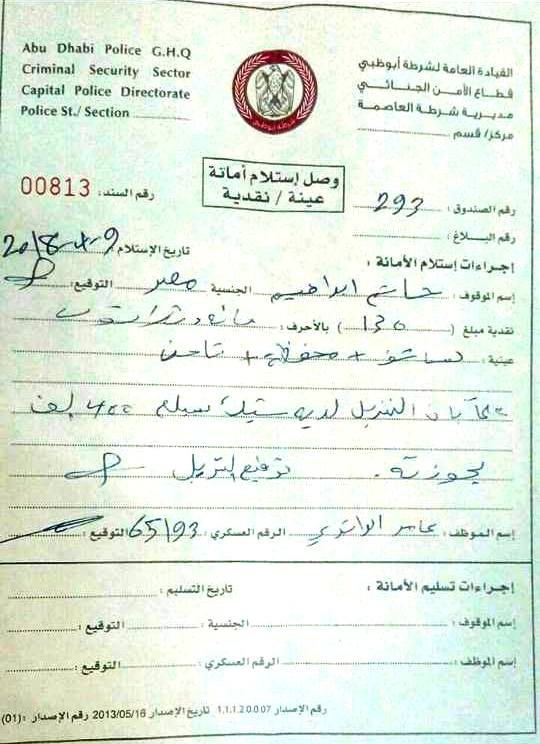 Abu Dhabi Police G.H.Q
Criminal Security Sector
Capital Police Directorate
Police St./ Section
القيادة العامة لشرطة أبوظبي
قطاع الأمن الجنائي
مديرية شرطة العاصمة
مركز/ قسم
شرطة أبوظبي
وصل إستلام أمانة
عينة / نقدية
رقم السند: 00813
رقم الصندوق: 293
رقم البلاغ:
تاريخ الإستلام: 2018-4-9
إجراءات إستلام الأمانة:
إسم الموقوف: حاتم ابراهيم الجنسية: مصر التوقيع:
نقدية مبلغ (130) بالأحرف: مائة وثلاثون
عينية: + محفظة +
علماً بان النزيل لديه شيك بمبلغ 400 الف
بحوزته. توقيع النزيل
إسم الموظف: عامر الرقم العسكري: 65193 التوقيع:
إجراءات تسليم الأمانة: تاريخ التسليم:
إسم الموقوف: الجنسية: التوقيع:
إسم الموظف: الرقم العسكري: التوقيع:
رقم الإصدار 1.1.1.2.0.0.07 تاريخ الإصدار 2013/05/16 رقم الإصدار: (01)